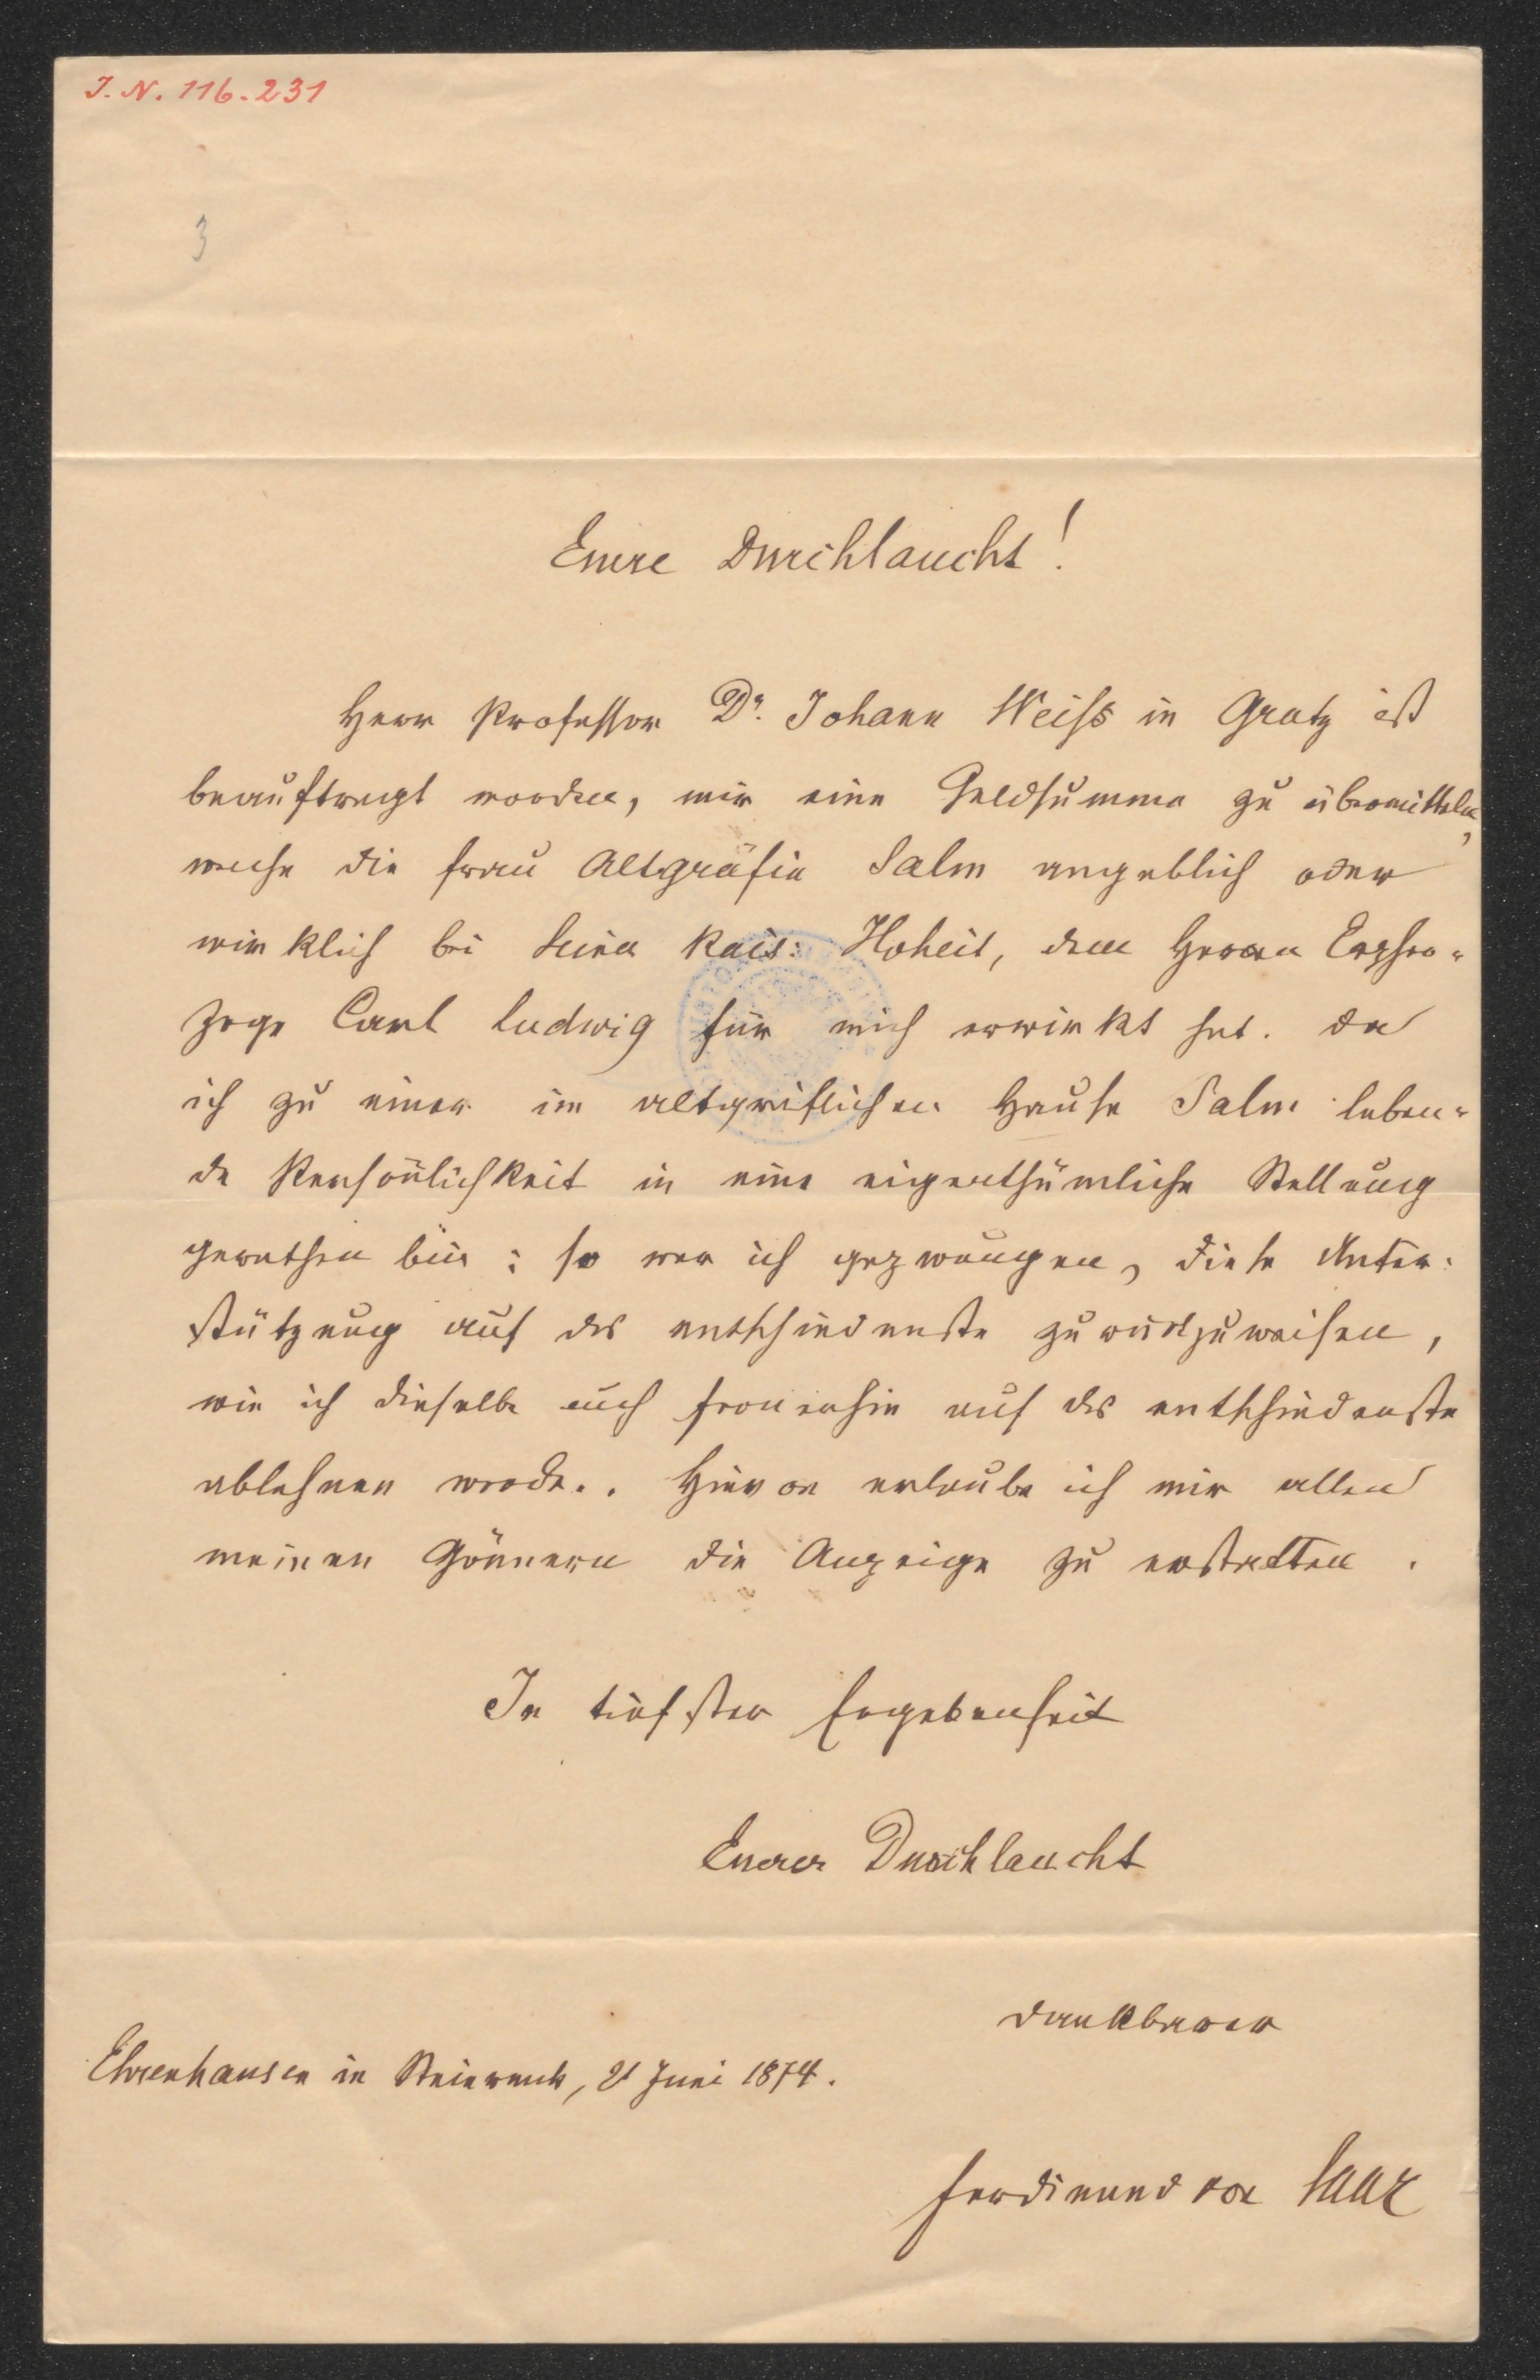 J. N. 116.231
3
Euere Durchlaucht!
Herr Professor Dr. Johann Weiß in Gratz ist
beauftragt worden, mir eine Geldsumme zu übermitteln,
welche die Frau Altgräfin Salm angeblich oder
wirklich bei Seiner Kais: Hoheit, dem Herrn Erzher-
zoge Carl Ludwig für mich erwirkt hat. Da
ich zu einer im altgräflichen Hause Salm leben-
de Persönlichkeit in eine eigenthümliche Stellung
gerathen bin: so war ich gezwungen, diese Unter-
stützung auf das entschiedenste zurückzuweisen,
wie ich dieselbe auch fernerhin auf das entschiedenste
ablehnen werde. Hievon erlaube ich mir allen
meinen Gönnern die Anzeige zu erstatten.
In tiefster Ergebenheit
Euerer Durchlaucht
dankbarer
Ehrenhausen in Steiermark, 21 Juni 1874.
Ferdinand von Saar